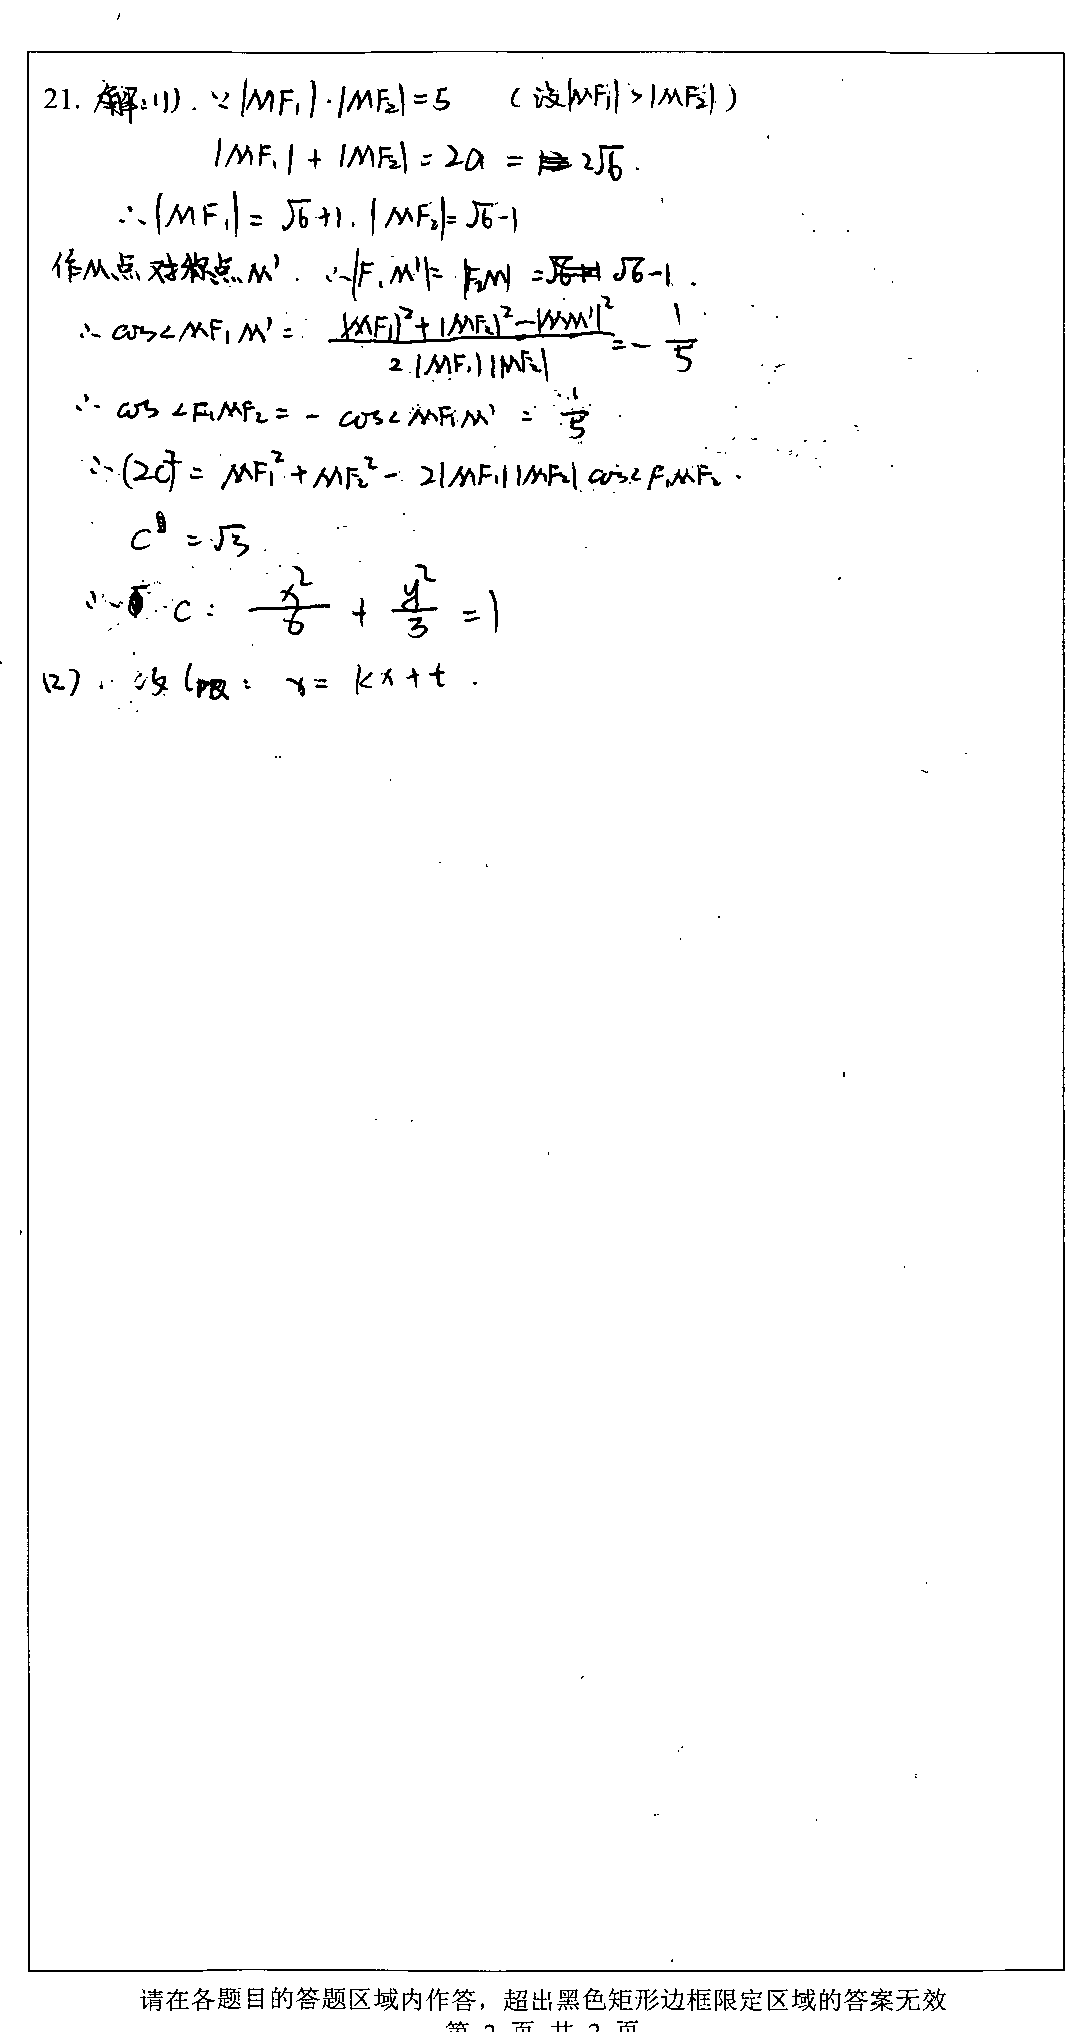 21. 解:(1). ∵|MF₁|·|MF₂|=5 (设|MF₁|>|MF₂|)
|MF₁|+|MF₂|=2a=2√6.
∴|MF₁|=√6+1.|MF₂|=√6-1
作M点对称点M'. ∴|F₁M'|=|F₂M|=√6-1.
∴cos∠MF₁M'=(|MF₁|²+|MF₂|²-|MM'|²)/(2|MF₁||MF₂|)=-1/5
∴cos∠F₁MF₂=-cos∠MF₁M'=1/5
∴(2c)²=MF₁²+MF₂²-2|MF₁||MF₂|cos∠F₁MF₂.
c=√3
∴C: x²/6+y²/3=1
(2). 设l: y=kx+t.
请在各题目的答题区域内作答，超出黑色矩形边框限定区域的答案无效
第 2 页 共 2 页